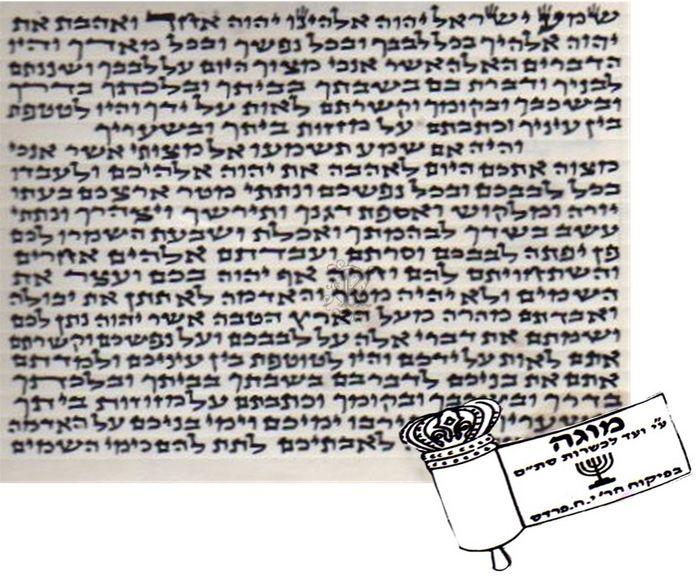 שמע ישראל יהוה אלהינו יהוה אחד ואהבת את
יהוה אלהיך בכל לבבך ובכל נפשך ובכל מאדך והיו
הדברים האלה אשר אנכי מצוך היום על לבבך ושננתם
לבניך ודברת בם בשבתך בביתך ובלכתך בדרך
ובשכבך ובקומך וקשרתם לאות על ידך והיו לטטפת
בין עיניך וכתבתם על מזזות ביתך ובשעריך
והיה אם שמע תשמעו אל מצותי אשר אנכי
מצוה אתכם היום לאהבה את יהוה אלהיכם ולעבדו
בכל לבבכם ובכל נפשכם ונתתי מטר ארצכם בעתו
יורה ומלקוש ואספת דגנך ותירשך ויצהרך ונתתי
עשב בשדך לבהמתך ואכלת ושבעת השמרו לכם
פן יפתה לבבכם וסרתם ועבדתם אלהים אחרים
והשתחויתם להם וחרה אף יהוה בכם ועצר את
השמים ולא יהיה מטר והאדמה לא תתן את יבולה
ואבדתם מהרה מעל הארץ הטבה אשר יהוה נתן לכם
ושמתם את דברי אלה על לבבכם ועל נפשכם וקשרתם
אתם לאות על ידכם והיו לטוטפת בין עיניכם ולמדתם
אתם את בניכם לדבר בם בשבתך בביתך ובלכתך
בדרך ובשכבך ובקומך וכתבתם על מזוזות ביתך
ובשעריך ירבו ימיכם וימי בניכם על האדמה
לאבתיכם לתת להם כימי השמים
מוגה
ע"י ועד לכשרות סת"ם
בפיקוח חר' י.ח.פרדס